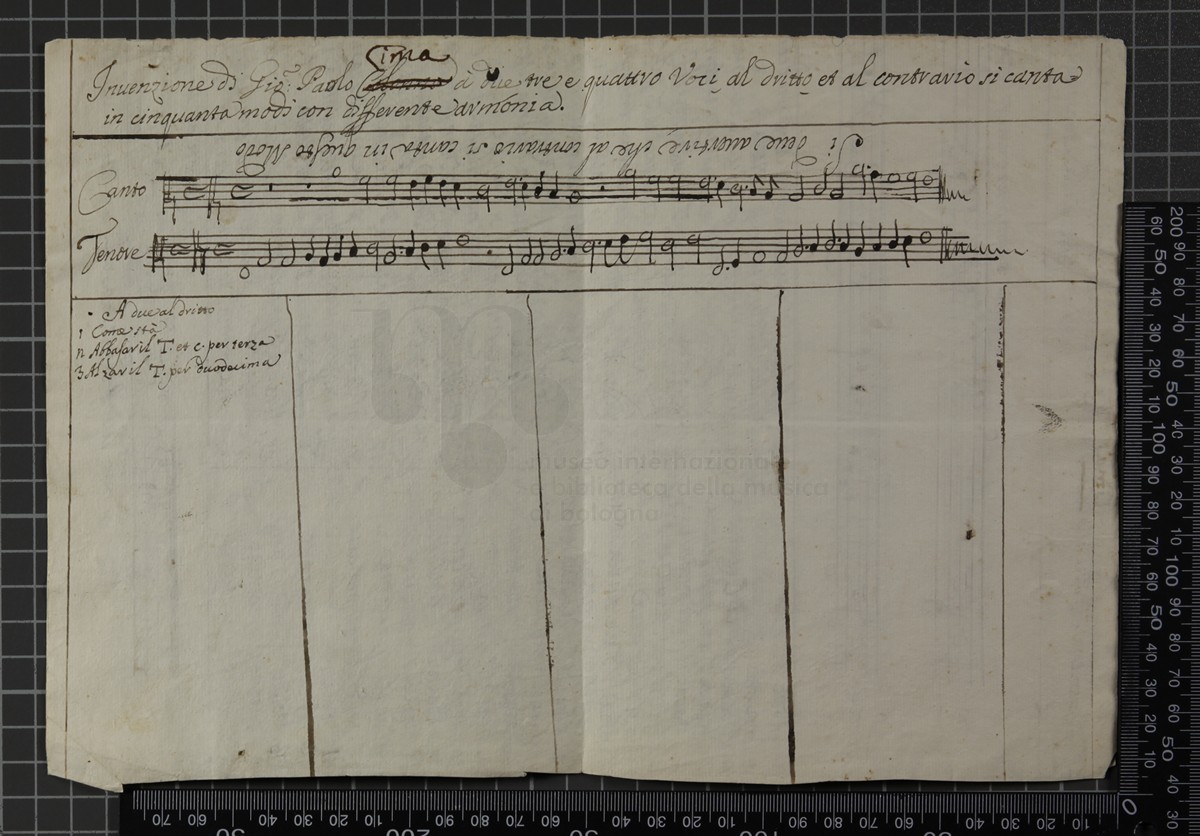 Cima
Invenzione di Gio: Paolo à due tre e quattro Voci al dritto et al contrario si canta
in cinquanta modi con differente armonia.
Si deve avertire che al contrario si canta in questo Modo
Canto
Tenore
A due al dritto
1 Come stà
2 Abbasar il T. et c. per terza
3 Alzar il T. per duodecima
museo internazionale
e biblioteca della musica
di bologna